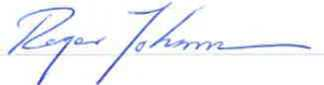 Roger Johnson